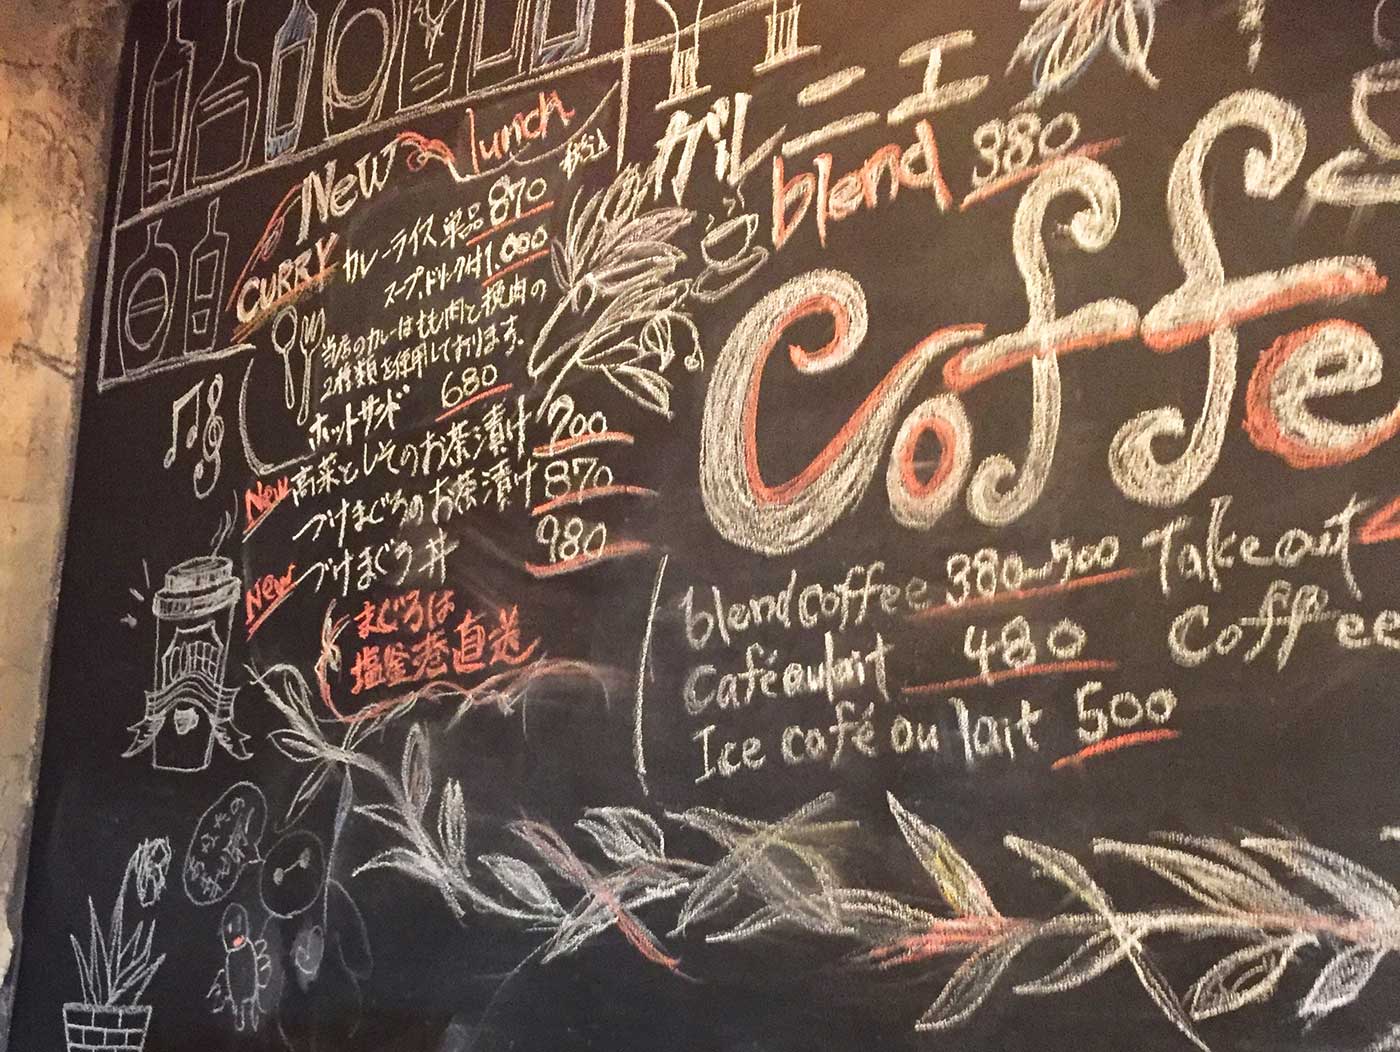 New lunch
税込
CURRY カレーライス 単品 870
スープ、ドリンク付 1.000
当店のカレーはもも肉と挽肉の
2種類を使用しております。
ホットサンド 680
New 高菜としそのお茶漬け 700
づけまぐろのお茶漬け 870
New づけまぐろ丼 980
まぐろは
塩釜港直送
ガルニエ
blend 380
Coffe
blend coffee 380~500
Café au lait 480
Ice café au lait 500
Takeout
Coffee